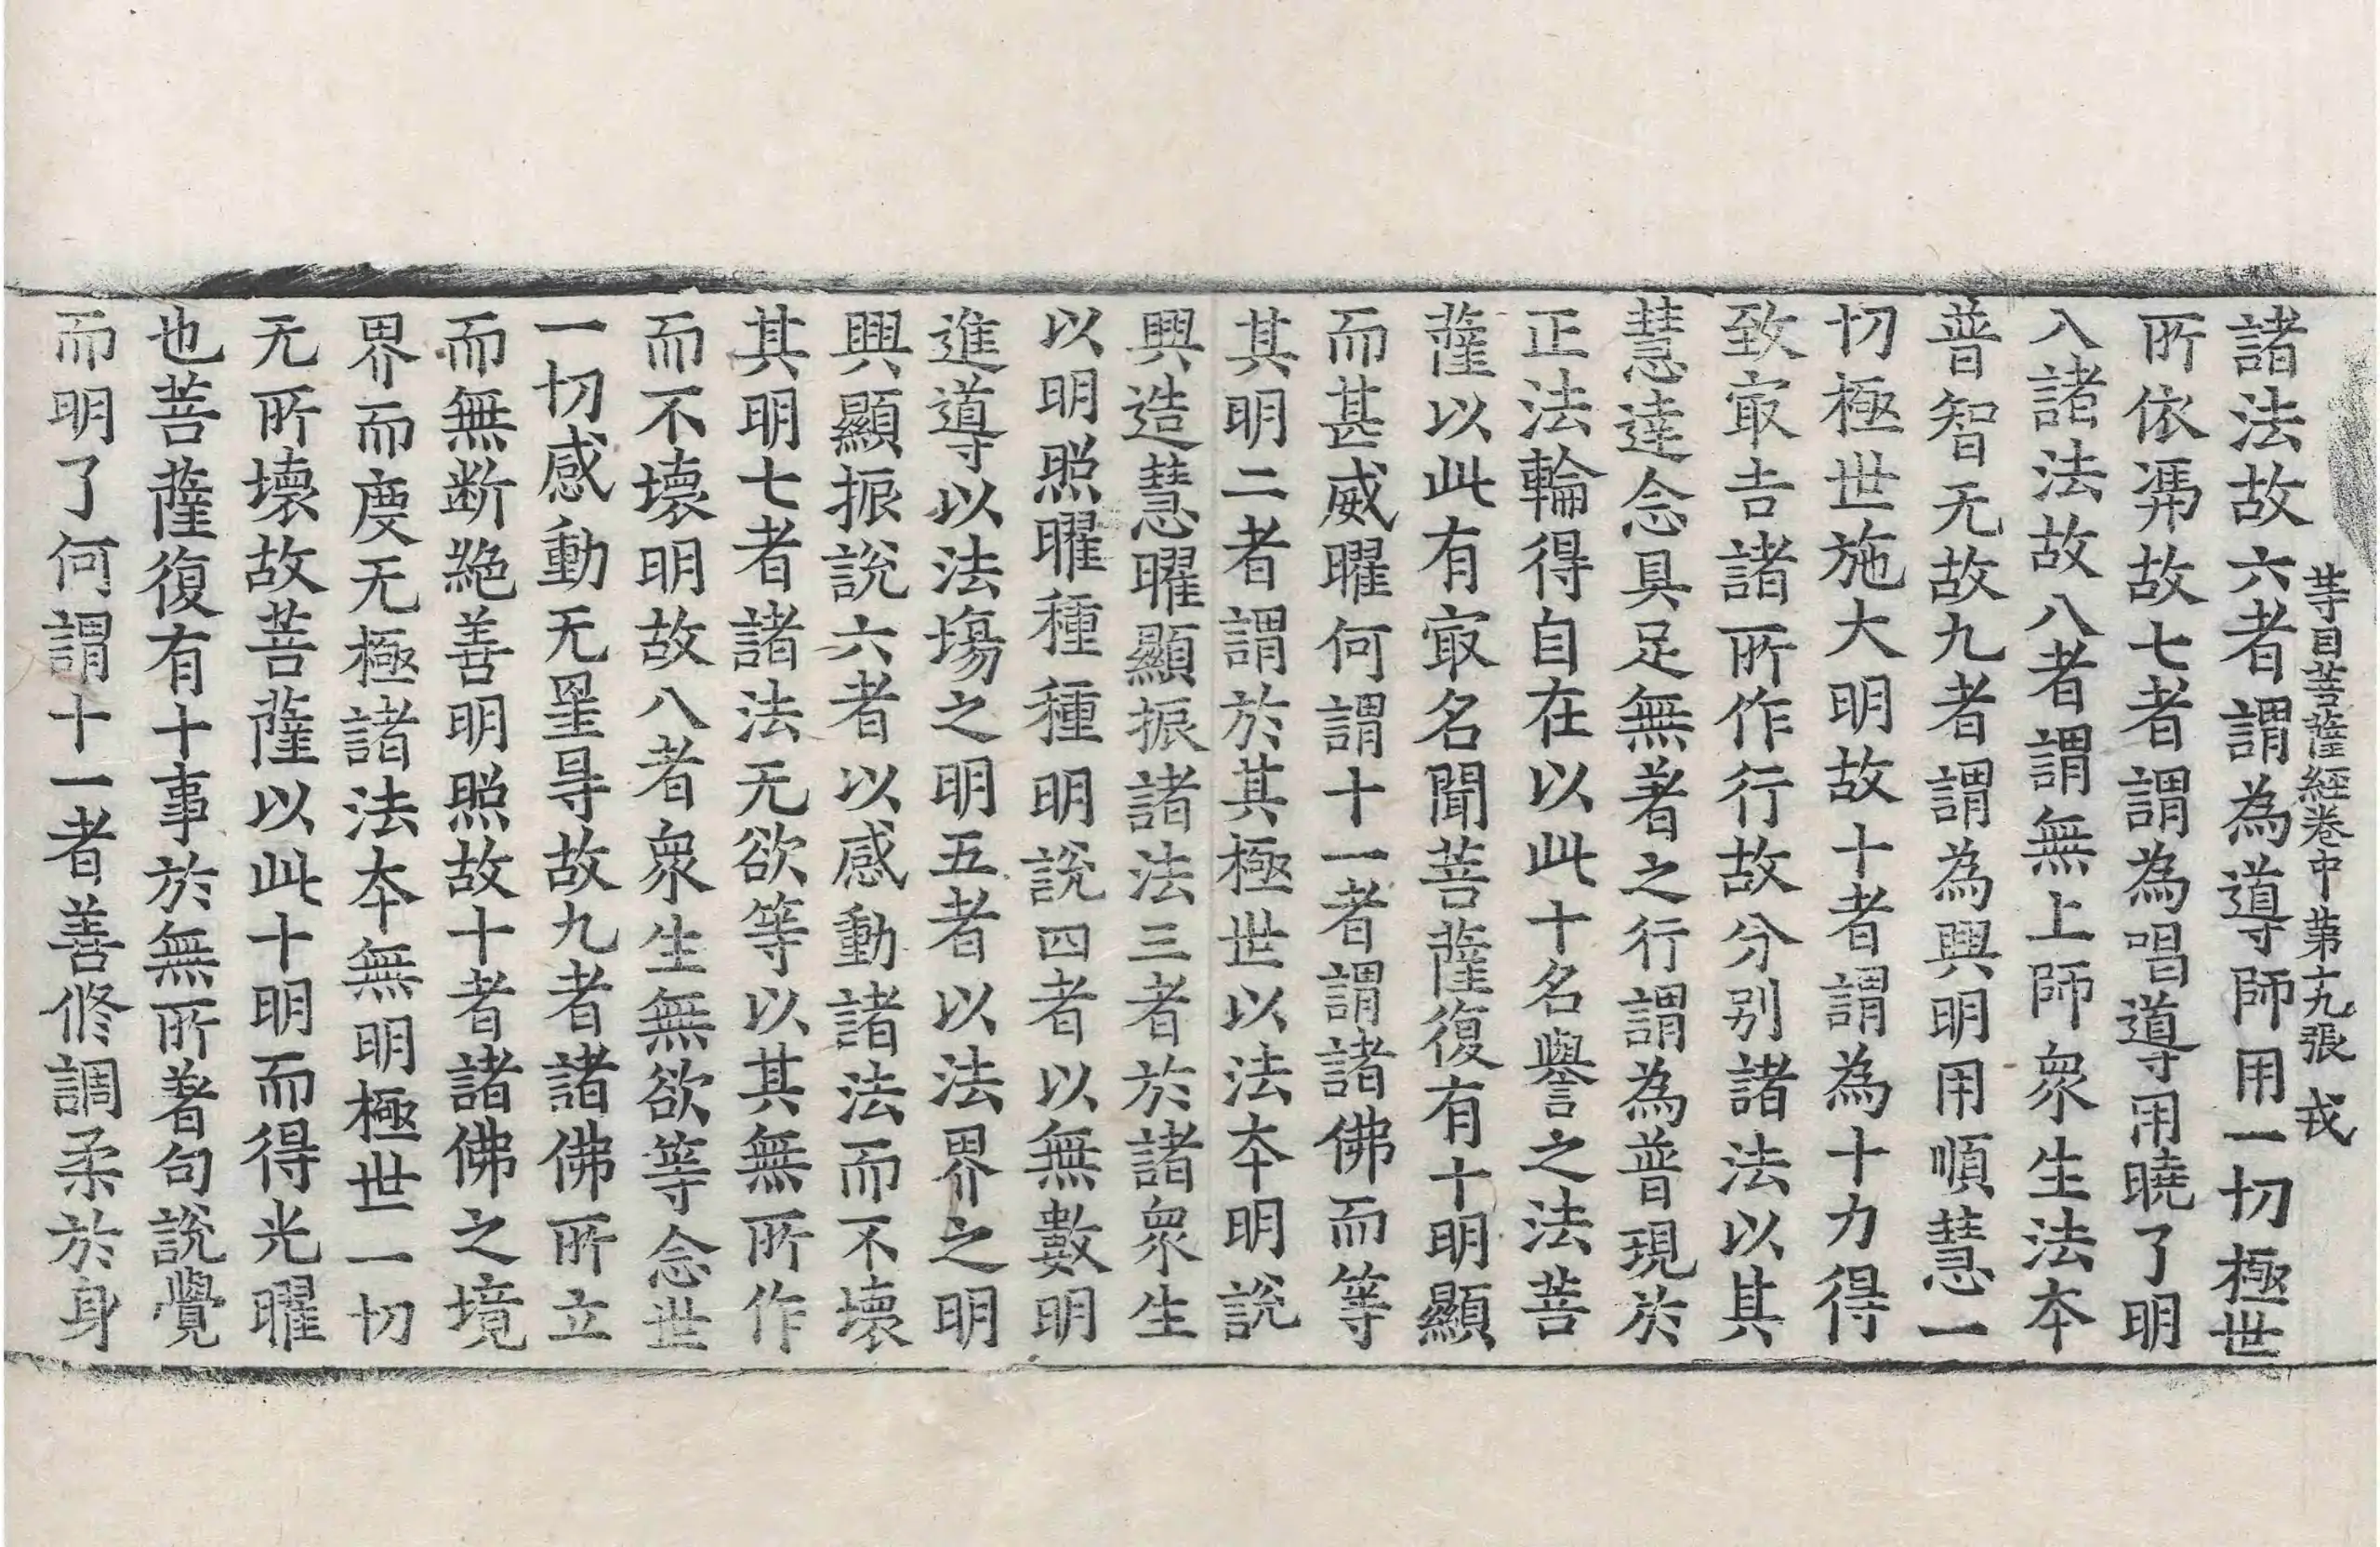 等目菩薩經卷中 第十九張 戎
諸法故六者謂為導師用一切極世
所依馮故七者謂為唱導用曉了明
入諸法故八者謂無上師衆生法夲
普智无故九者謂為興明用順慧一
切極世施大明故十者謂為十力得
致㝡吉諸所作行故分别諸法以其
慧達念具足無著之行謂為普現於
正法輪得自在以此十名譽之法菩
薩以此有㝡名聞菩薩復有十明顯
而甚威曜何謂十一者謂諸佛而等
其明二者謂於其極世以法夲明説
興造慧曜顯振諸法三者於諸衆生
以明照曜種種明説四者以無數明
進導以法塲之明五者以法界之明
興顯振説六者以感動諸法而不壞
其明七者諸法无欲等以其無所作
而不壞明故八者衆生無欲等念世
一切感動无罣㝵故九者諸佛所立
而無断絶善明照故十者諸佛之境
界而度无極諸法夲無明極世一切
无所壞故菩薩以此十明而得光曜
也菩薩復有十事於無所著句説覺
而明了何謂十一者善修調柔於身